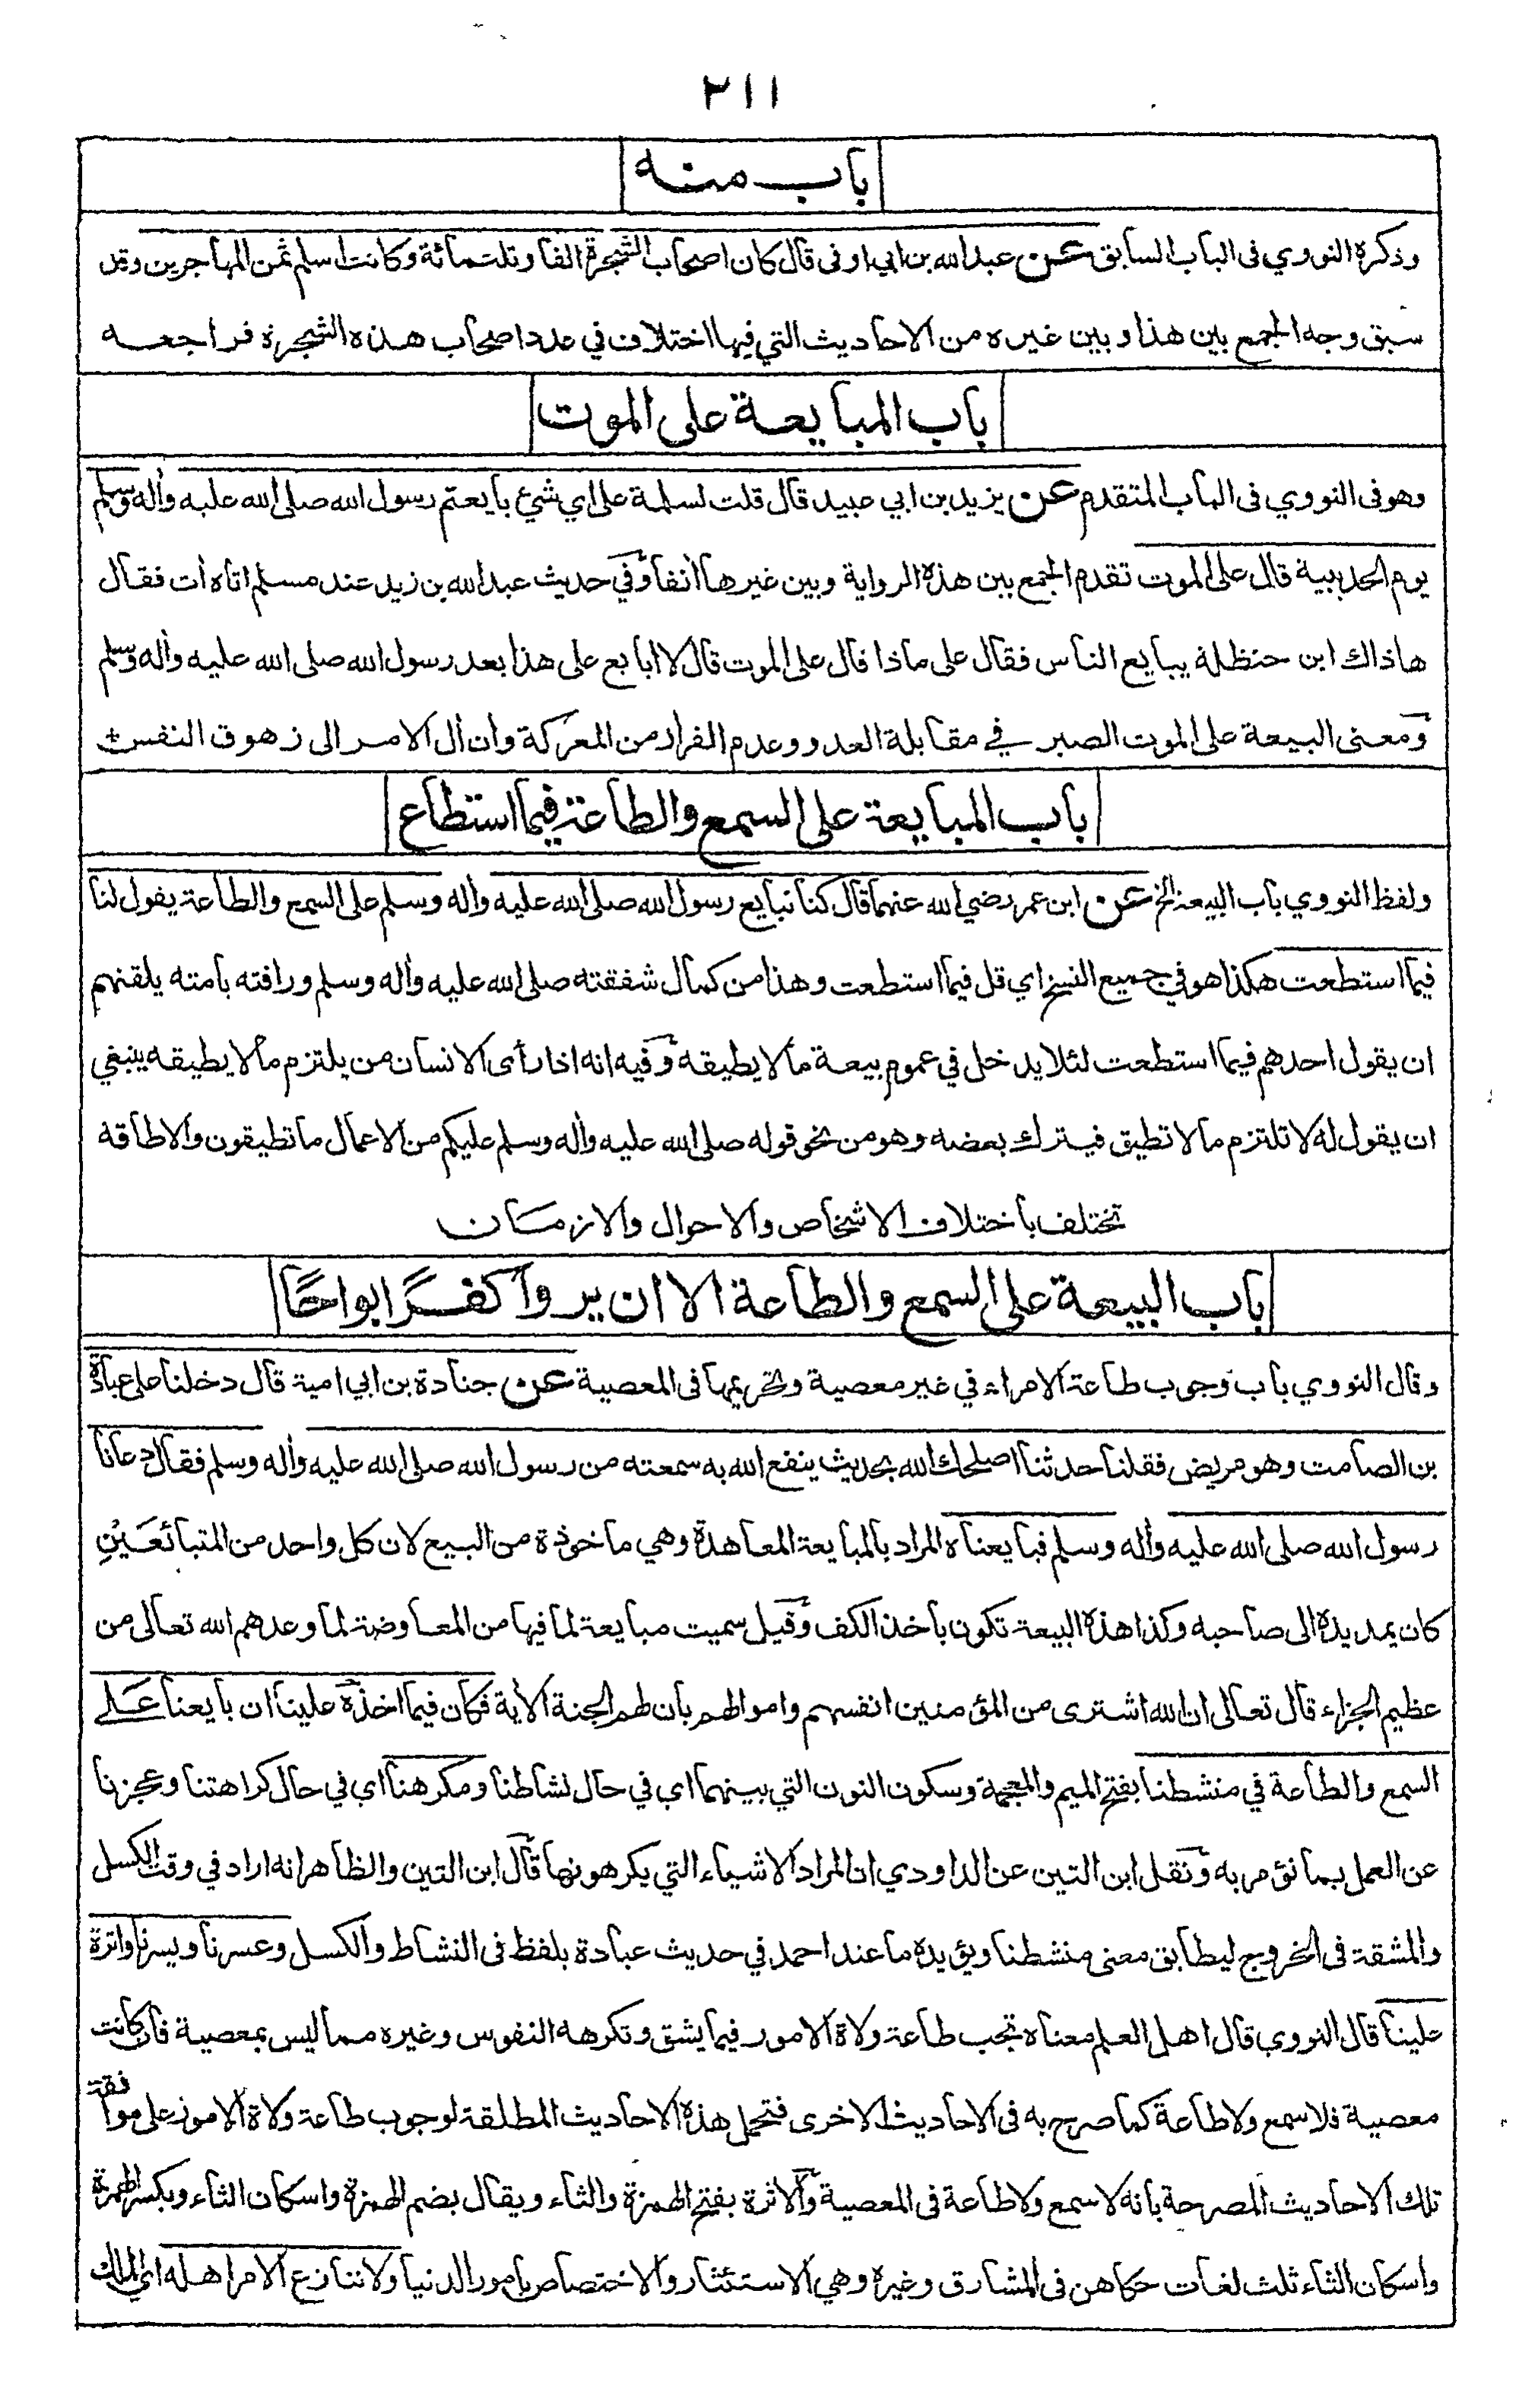 ٢١١
باب منه
وذكره النووي فى الباب السابق عن عبد الله بن ابي اوفى قال كان اصحاب الشجرة الفا وثلثمائة وكانت اسلم ثمن المهاجرين وقد
سبق وجه الجمع بين هذا وبين غيره من الاحاديث التي فيها اختلاف في عدد اصحاب هذه الشجرة فراجعه
باب المبايعة على الموت
وهو فى النووي فى الباب المتقدم عن يزيد بن ابي عبيد قال قلت لسلمة على اي شئ بايعتم رسول الله صلى الله عليه وأله وسلم
يوم الحديبية قال على الموت تقدم الجمع بين هذه الرواية وبين غيرها أنفا وفي حديث عبد الله بن زيد عند مسلم اتاه أت فقال
هاذاك ابن حنظلة يبايع الناس فقال على ماذا قال على الموت قال لا ابايع على هذا بعد رسول الله صلى الله عليه وأله وسلم
ومعنى البيعة على الموت الصبر في مقابلة العدو وعدم الفرار من المعركة وان أل الامر الى زهوق النفس
باب المبايعة على السمع والطاعة فيما استطاع
ولفظ النووي باب البيعة الخ عن ابن عمر رضي الله عنهما قال كنا نبايع رسول الله صلى الله عليه وأله وسلم على السمع والطاعة يقول لنا
فيما استطعت هكذا هو في جميع النسخ اي قل فيما استطعت وهذا من كمال شفقته صلى الله عليه وأله وسلم ورافته بامته يلقنهم
ان يقول احدهم فيما استطعت لئلا يدخل في عموم بيعة ما لا يطيقه وفيه انه اذا رأى الانسان من يلتزم ما لا يطيقه ينبغي
ان يقول له لا تلتزم ما لا تطيق فيترك بعضه وهو من نحو قوله صلى الله عليه وأله وسلم عليكم من الاعمال ما تطيقون والاطاقة
تختلف باختلاف الاشخاص والاحوال والازمان
باب البيعة على السمع والطاعة الا ان يروا كفرًا بواحًا
وقال النووي باب وجوب طاعة الامراء في غير معصية وتحريمها فى المعصية عن جنادة بن ابي امية قال دخلنا على عبادة
بن الصامت وهو مريض فقلنا حدثنا اصلحك الله بحديث ينفع الله به سمعته من رسول الله صلى الله عليه وأله وسلم فقال دعانا
رسول الله صلى الله عليه وأله وسلم فبايعناه المراد بالمبايعة المعاهدة وهي ماخوذة من البيع لان كل واحد من المتبائعَيْنِ
كان يمد يده الى صاحبه وكذا هذه البيعة تكون باخذ الكف وقيل سميت مبايعة لما فيها من المعاوضة لما وعدهم الله تعالى من
عظيم الجزاء قال تعالى ان الله اشترى من المؤمنين انفسهم واموالهم بان لهم الجنة الأية فكان فيما اخذه علينا ان بايعنا على
السمع والطاعة في منشطنا بفتح الميم والمعجمة وسكون النون التي بينهما اي في حال نشاطنا ومكرهنا اي في حال كراهتنا وعجزنا
عن العمل بما نؤمر به ونقل ابن التين عن الداودي ان المراد الاشياء التي يكرهونها قال ابن التين والظاهر انه اراد في وقت الكسل
والمشقة فى الخروج ليطابق معنى منشطنا ويؤيده ما عند احمد في حديث عبادة بلفظ فى النشاط والكسل وعسرنا ويسرنا واثرة
علينا قال النووي قال اهل العلم معناه تجب طاعة ولاة الامور فيما يشق وتكرهه النفوس وغيره مما ليس بمعصية فان كانت
معصية فلا سمع ولا طاعة كما صرح به فى الاحاديث الاخرى فتحمل هذه الاحاديث المطلقة لوجوب طاعة ولاة الامور على موافقة
تلك الاحاديث المصرحة بانه لا سمع ولا طاعة فى المعصية والاثرة بفتح الهمزة والثاء ويقال بضم الهمزة واسكان الثاء وبكسر الهمزة
واسكان الثاء ثلث لغات حكاهن فى المشارق وغيره وهي الاستئثار والاختصاص بامور الدنيا ولا ننازع الامر اهله اي الملك